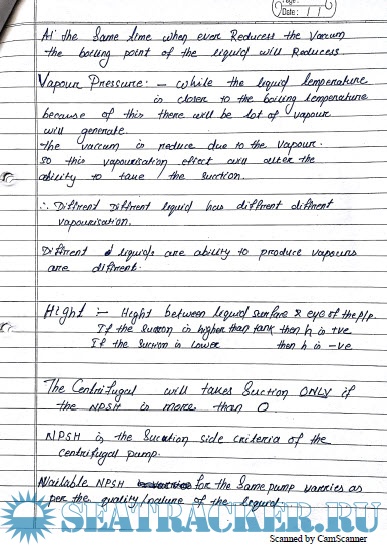 Page:
Date: / /
At the Same time when ever Reducess the Vaccum
the boiling point of the liquid will Reducess.
Vapour Pressure:- While the liquid temperature
is closer to the boiling temperature
because of this there will be lot of vapour
will generate.
the vaccum is reduce due to the vapour.
so this vapourisation effect will alter the
ability to take the suction.
∴ Diffrent Diffrent liquid has diffrent diffrent
vapourisation.
Diffrent liquids are ability to produce vapours
are diffrent.
Hight :- Hight between liquid surface & eye of the p/p.
If the suction is higher than tank then h is +ve
If the suction is lower then h is -ve
The Centrifugal will takes Suction ONLY if
the NPSH is more than 0
NPSH is the Sucation side criteria of the
centrifugal pump.
Available NPSH for the Same pump varries as
per the quality/nature of the liquid
SEATRACKER.RU
Scanned by CamScanner